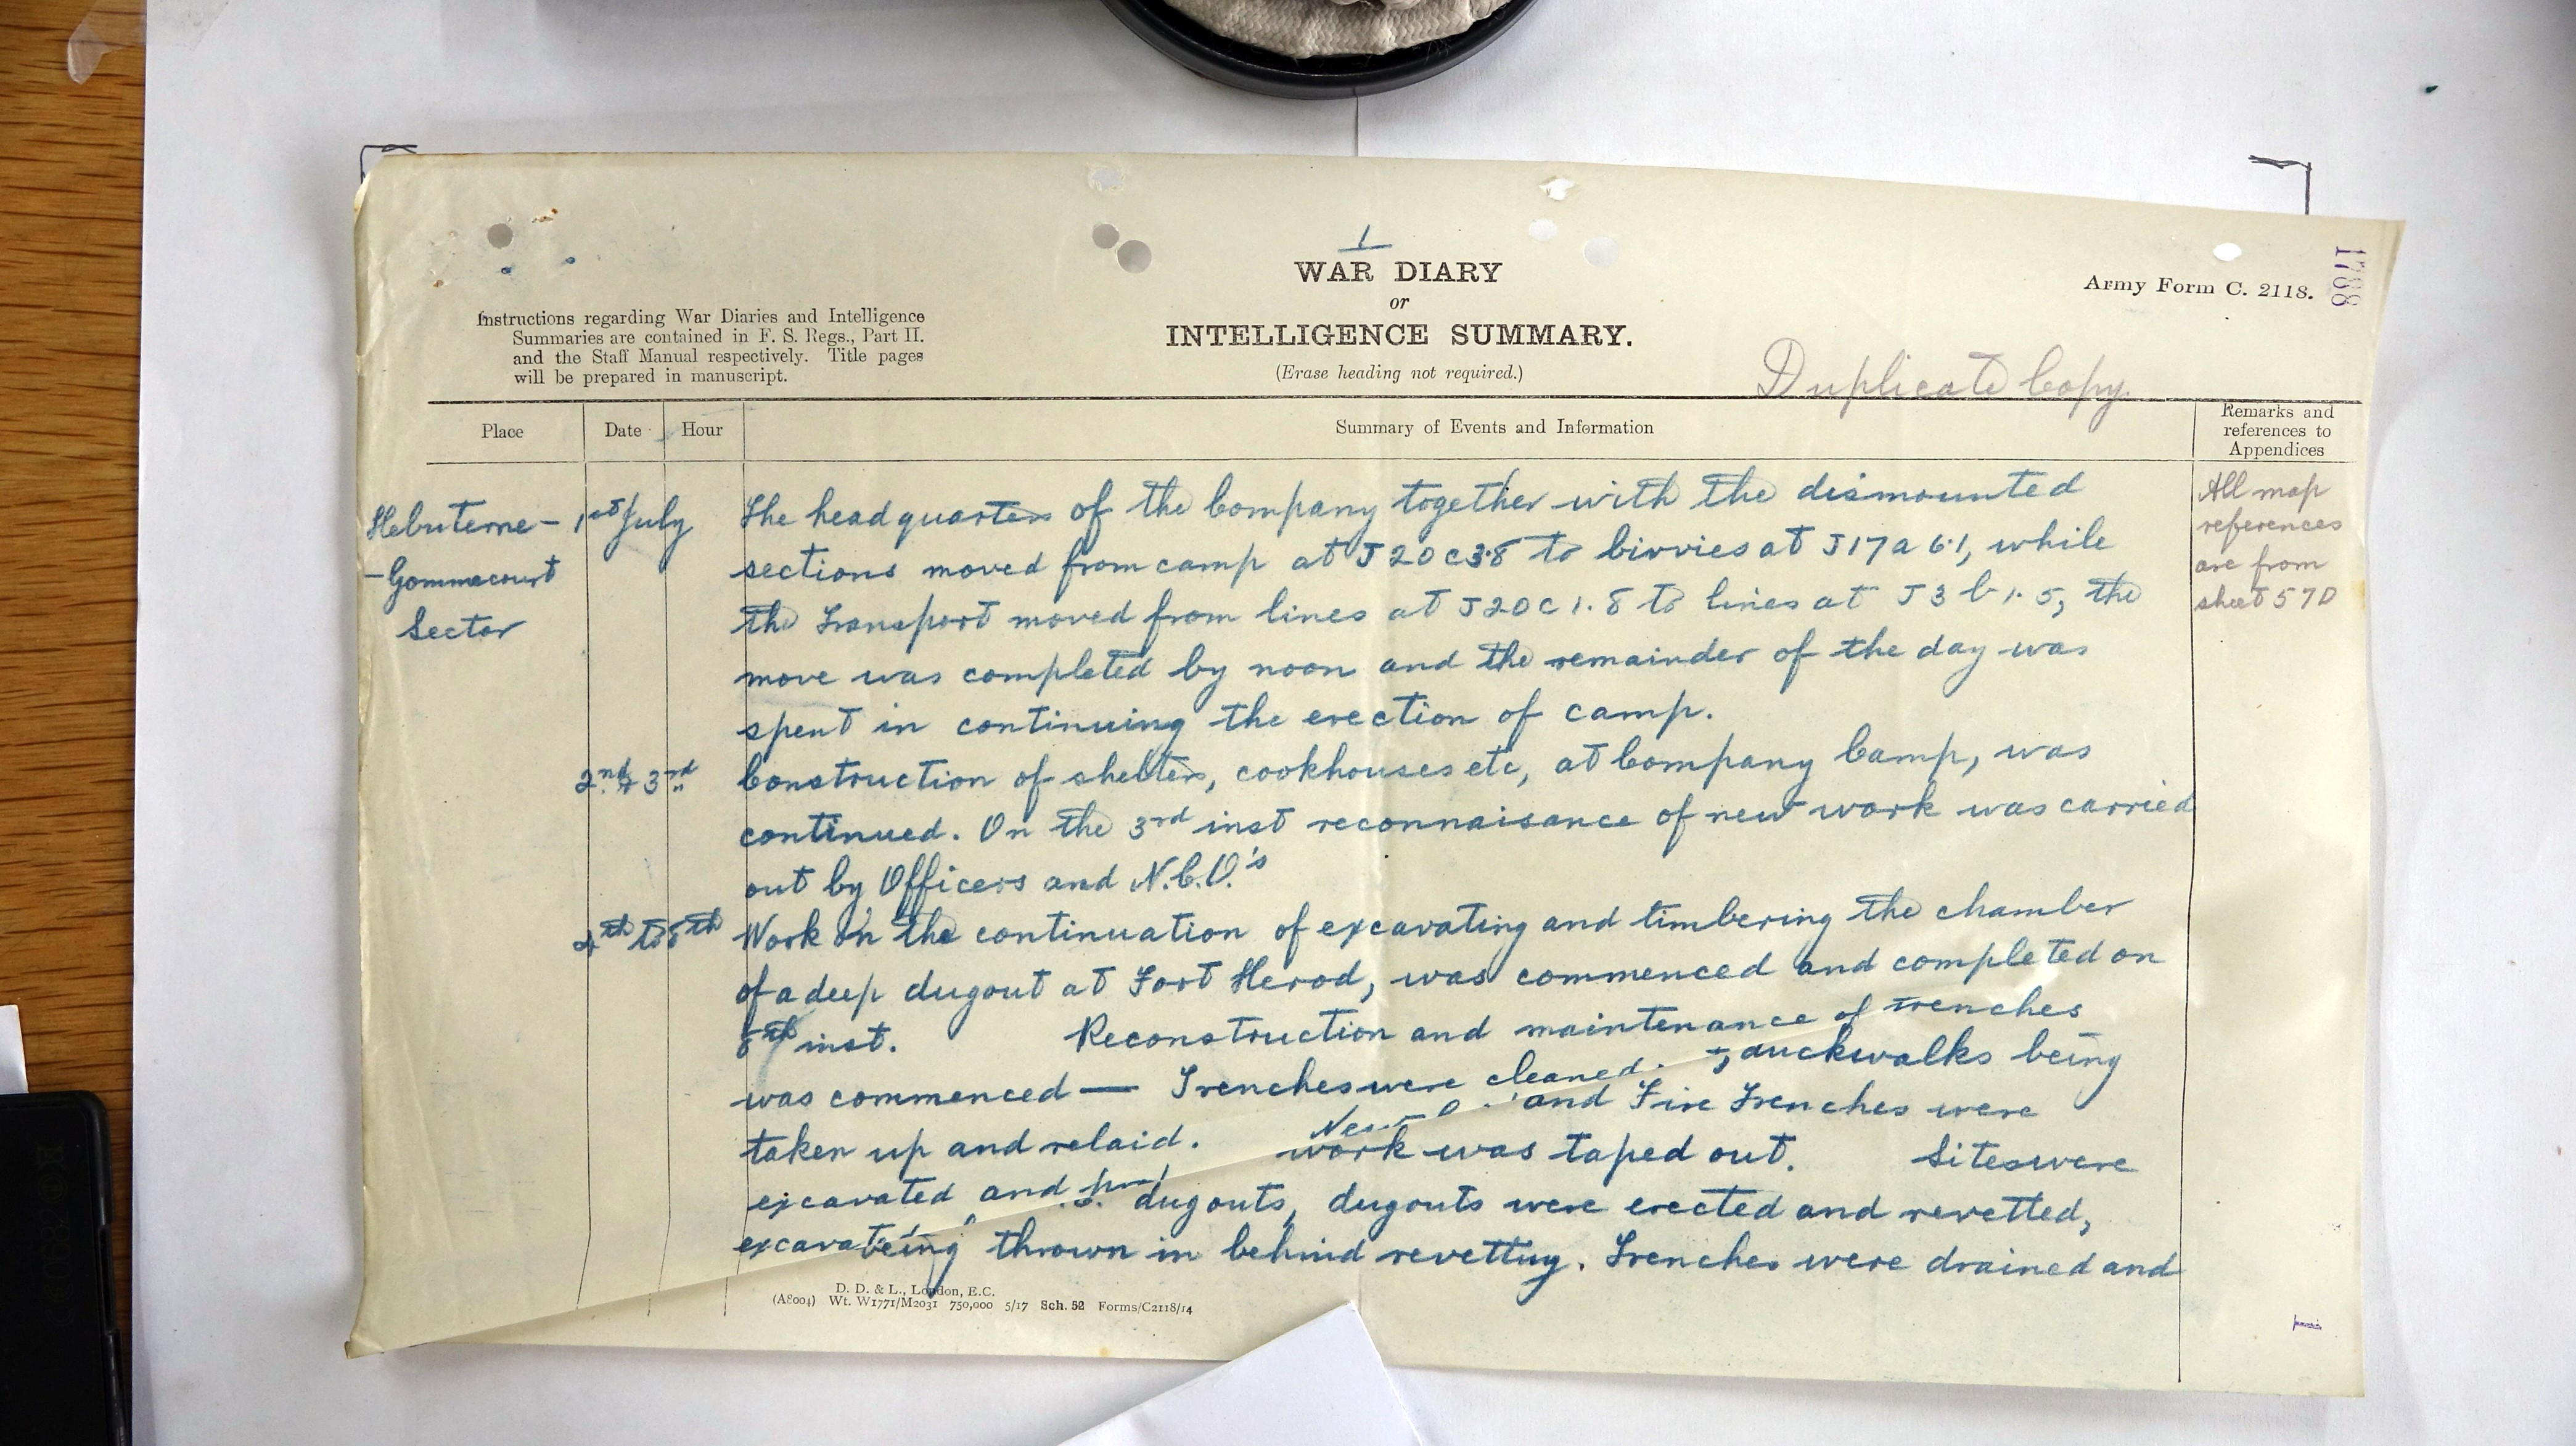 1
WAR DIARY
or
INTELLIGENCE SUMMARY.
(Erase heading not required.)
Army Form C. 2118.
1788
Instructions regarding War Diaries and Intelligence
Summaries are contained in F. S. Regs., Part II.
and the Staff Manual respectively. Title pages
will be prepared in manuscript.
Duplicate Copy.
Place Date Hour Summary of Events and Information Remarks and
references to
Appendices
Hebuterne - 1st July The headquarters of the Company together with the dismounted
- Gommecourt sections moved from camp at J20c3.8 to bivvies at J17a6.1, while
Sector the Transport moved from lines at J20c1.8 to lines at J3b1.5, the
move was completed by noon and the remainder of the day was
spent in continuing the erection of camp.
All map
references
are from
sheet 57D
2nd & 3rd Construction of shelters, cookhouses etc, at Company Camp, was
continued. On the 3rd inst reconnaisance of new work was carried
out by Officers and N.C.O.'s
4th to 8th Work on the continuation of excavating and timbering the chamber
of a deep dugout at Fort Herod, was commenced and completed on
8th inst. Reconstruction and maintenance of trenches
was commenced — Trenches were cleaned, duckwalks being
taken up and relaid. and Fire Trenches were
work was taped out. Sites were
excavated and dugouts, dugouts were erected and revetted,
being thrown in behind revetting. Trenches were drained and
D. D. & L., London, E.C.
(A8004) Wt. W1771/M2031 750,000 5/17 Sch. 52 Forms/C2118/14